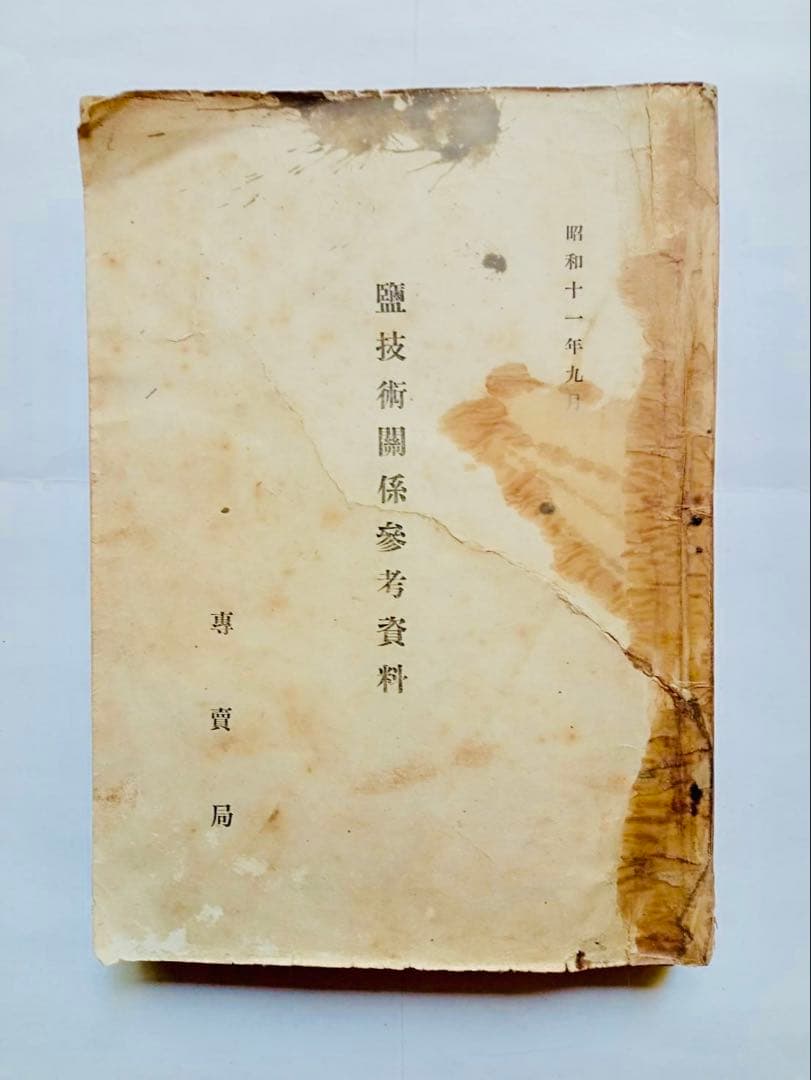 昭和十一年九月
鹽技術關係參考資料
專賣局